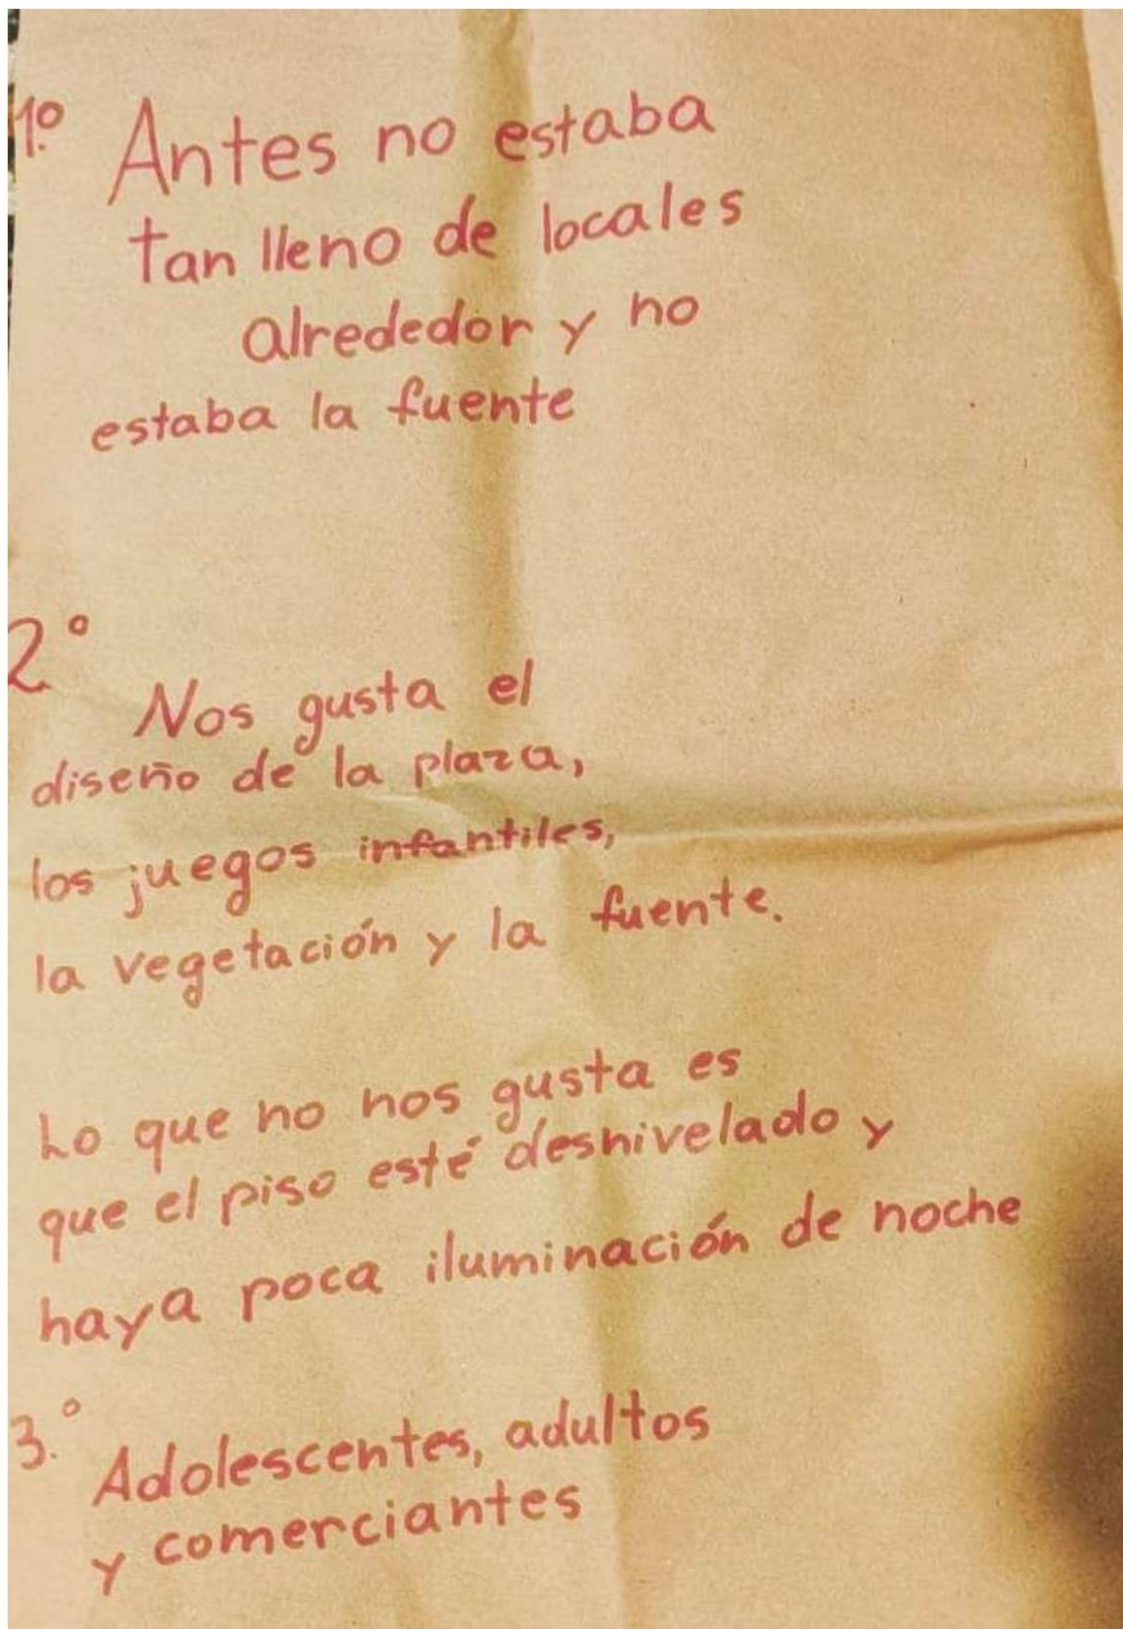 1.º Antes no estaba
tan lleno de locales
alrededor y no
estaba la fuente
2º
Nos gusta el
diseño de la plaza,
los juegos infantiles,
la vegetación y la fuente.
Lo que no nos gusta es
que el piso esté desnivelado y
haya poca iluminación de noche
3.º
Adolescentes, adultos
y comerciantes